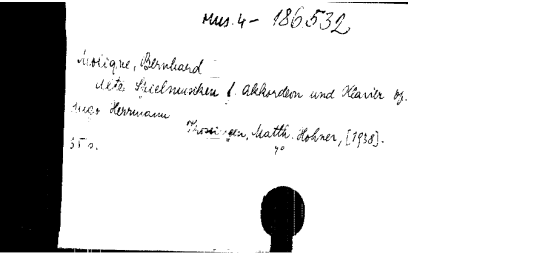 Mus. 4 - 186532
Molique, Bernhard
Alte Spielmusiken f. Akkordeon und Klavier v.
Hugo Herrmann
Trossingen, Matth. Hohner, [1938].
4°
35 s.